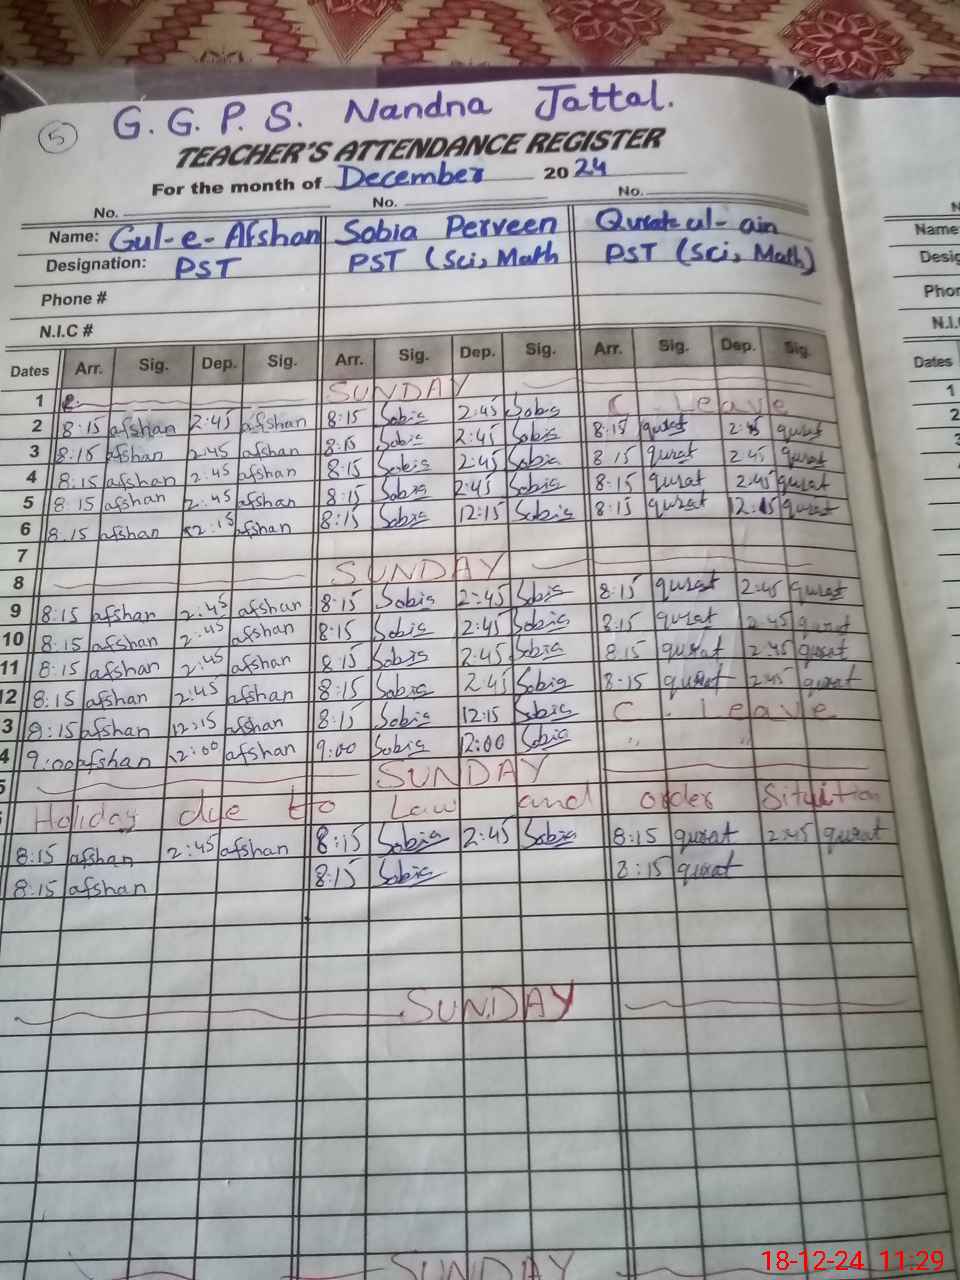 5
G. G. P. S. Nandna Jattal.
TEACHER'S ATTENDANCE REGISTER
For the month of December 2024
No. No. No.
Name: Gul-e-Afshan Sobia Perveen Qurat ul-ain
Designation: PST PST (Sci, Math PST (Sci, Math)
Phone #
N.I.C #
Dates Arr. Sig. Dep. Sig. Arr. Sig. Dep. Sig. Arr. Sig. Dep. Sig.
1 SUNDAY
2 8:15 afshan 2:45 afshan 8:15 Sobia 2:45 Sobia C. Leave
3 8:15 afshan 2:45 afshan 8:15 Sobia 2:45 Sobia 8:15 qurat 2:45 qurat
4 8:15 afshan 2:45 afshan 8:15 Sobia 2:45 Sobia 8:15 qurat 2:45 qurat
5 8:15 afshan 2:45 afshan 8:15 Sobia 2:45 Sobia 8:15 qurat 2:45 qurat
6 8:15 afshan 12:15 afshan 8:15 Sobia 12:15 Sobia 8:15 qurat 12:15 qurat
7
8 SUNDAY
9 8:15 afshan 2:45 afshan 8:15 Sobia 2:45 Sobia 8:15 qurat 2:45 qurat
10 8:15 afshan 2:45 afshan 8:15 Sobia 2:45 Sobia 8:15 qurat 2:45 qurat
11 8:15 afshan 2:45 afshan 8:15 Sobia 2:45 Sobia 8:15 qurat 2:45 qurat
12 8:15 afshan 2:45 afshan 8:15 Sobia 2:45 Sobia 8:15 qurat 2:45 qurat
3 8:15 afshan 12:15 afshan 8:15 Sobia 12:15 Sobia C. Leave
4 9:00 afshan 12:00 afshan 9:00 Sobia 12:00 Sobia " "
5 SUNDAY
Holiday due to Law and order Situition
8:15 afshan 2:45 afshan 8:15 Sobia 2:45 Sobia 8:15 qurat 2:45 qurat
8:15 afshan 8:15 Sobia 8:15 qurat
SUNDAY
SUNDAY
Name
Desig
Phon
N.I.
Dates
1
2
3
4
18-12-24 11:29